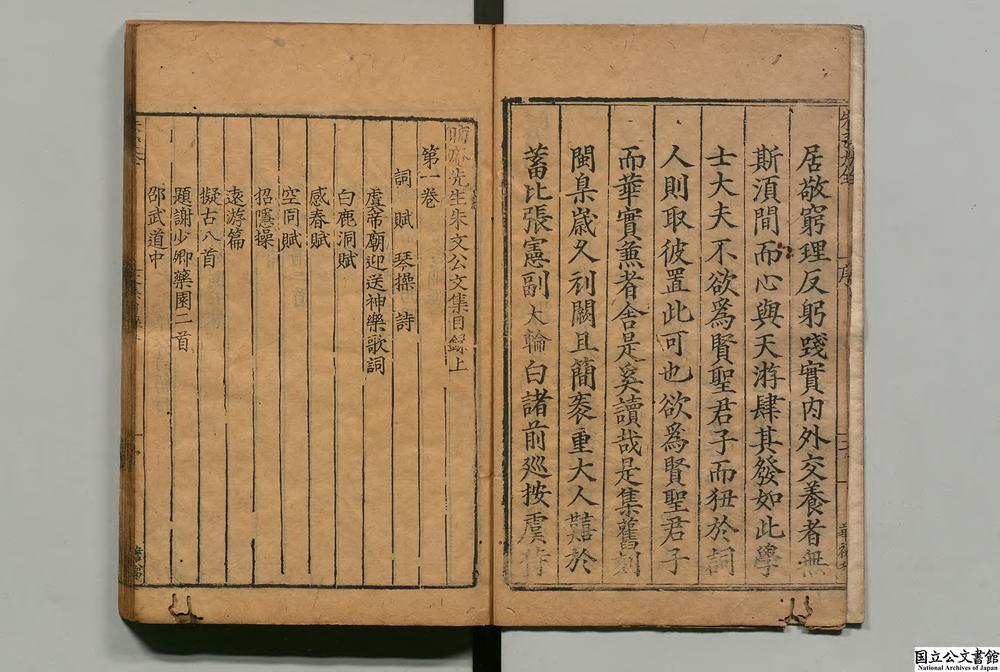 居敬窮理反躬踐實内外交養者無
斯須間而心與天游肆其發如此學
士大夫不欲爲賢聖君子而狃於詞
人則取彼置此可也欲爲賢聖君子
而華實兼者舍是奚讀哉是集舊刻
閩臬歳久刓闕且簡袠重大人囏於
蓄比張憲副大輪白諸前廵按虞侍
序
晦庵先生朱文公文集目録上
第一巻
詞 賦 琴操 詩
虞帝廟迎送神樂歌詞
白鹿洞賦
感春賦
空同賦
招隱操
遠游篇
擬古八首
題謝少卿藥園二首
邵武道中
国立公文書館
National Archives of Japan